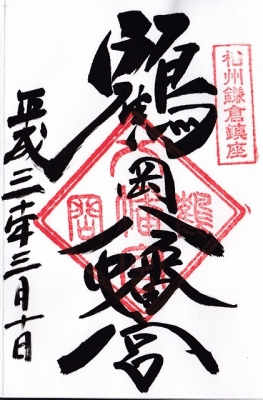 相州鎌倉鎮座
鶴岡八幡宮
平成三十年三月十日